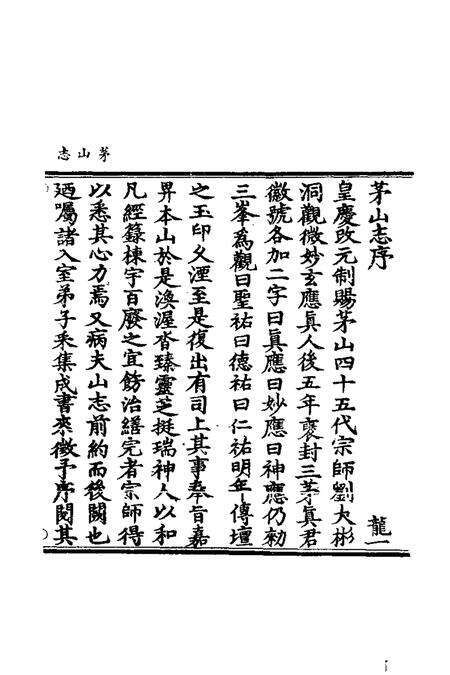 茅山志
茅山志序
龍一
皇慶改元制賜茅山四十五代宗師劉大彬
洞觀微妙玄應真人後五年褒封三茅真君
徽號各加二字曰真應曰妙應曰神應仍勑
三峯為觀曰聖祐曰德祐曰仁祐明年傳壇
之玉印久湮至是復出有司上其事奉旨嘉
畀本山於是渙渥沓臻靈芝挺瑞神人以和
凡經籙棟宇百廢之宜飭治繕完者宗師得
以悉其心力焉又病夫山志前約而後闕也
廼囑諸入室弟子采集成書來徵予序閱其